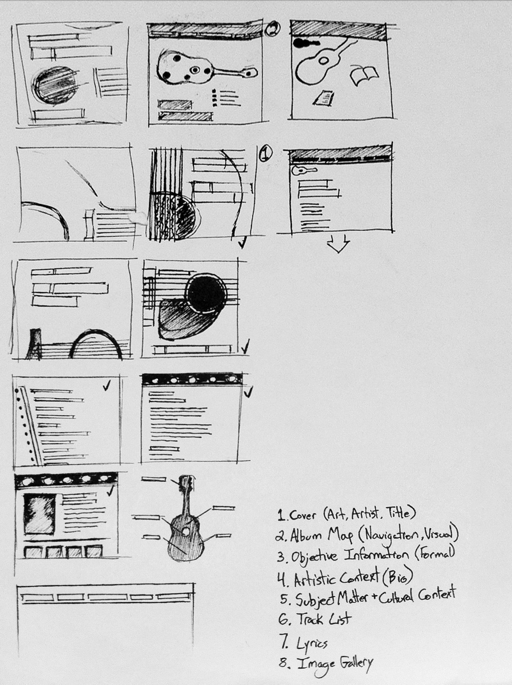 2
1
1. Cover (Art, Artist, Title)
2. Album Map (Navigation, Visual)
3. Objective Information (Formal)
4. Artistic Context (Bio)
5. Subject Matter + Cultural Context
6. Track List
7. Lyrics
8. Image Gallery